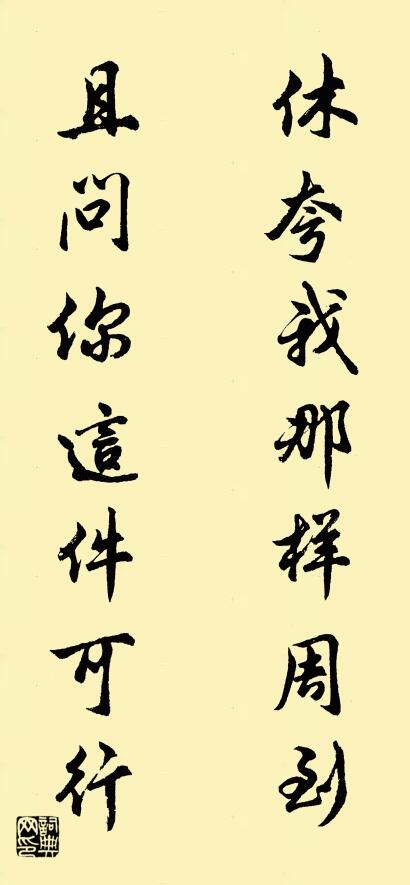 休夸我那样周到
且问你這件可行
詞典网印